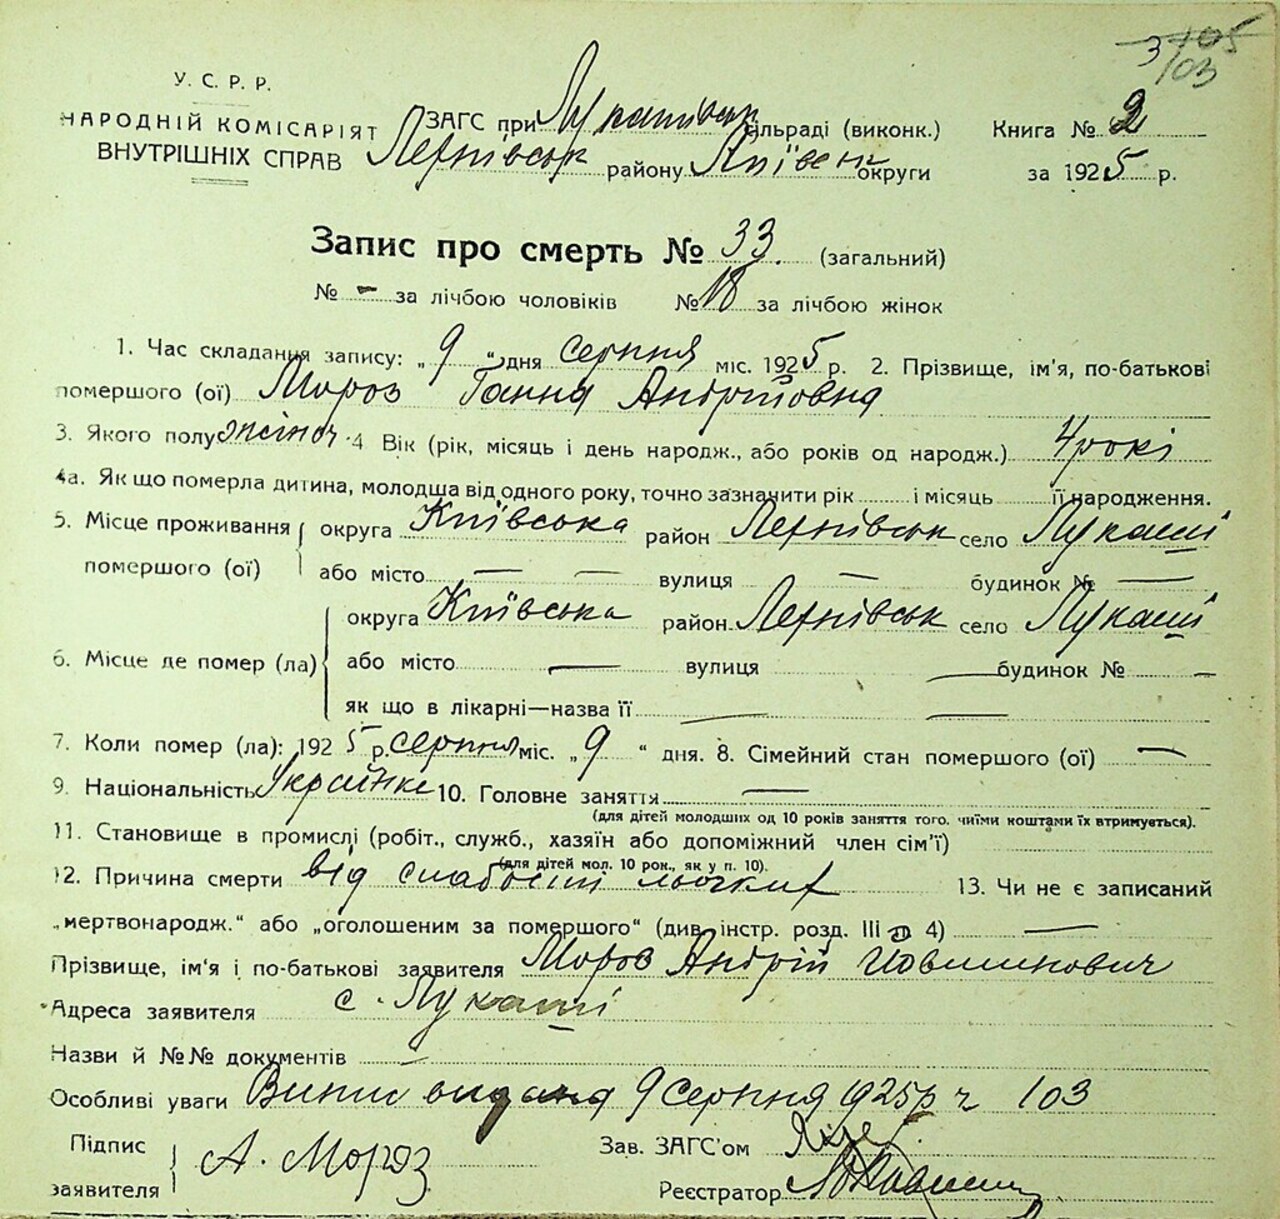 3 105
103
У. С. Р. Р.
НАРОДНІЙ КОМІСАРІЯТ
ВНУТРІШНІХ СПРАВ
ЗАГС при Лукашівськ сільраді (виконк.) Книга № 2
району округи за 1925 р.
Запис про смерть № 33. (загальний)
№ - за лічбою чоловіків № 18 за лічбою жінок
1. Час складання запису: „9“ дня серпня міс. 1925 р. 2. Прізвище, ім'я, по-батькові
помершого (ої) Мороз Ганна Андріївна
3. Якого полу жіноч. 4 Вік (рік, місяць і день народж., або років од народж.) 4 рокі
4а. Як що померла дитина, молодша від одного року, точно зазначити рік і місяць її народження.
5. Місце проживання помершого (ої) округа Київська район село Лукаші
або місто — — вулиця — будинок № —
6. Місце де помер (ла) округа Київська район село Лукаші
або місто — вулиця — будинок № —
як що в лікарні—назва її — —
7. Коли помер (ла): 1925 р. серпня міс. „9“ дня. 8. Сімейний стан помершого (ої) —
9. Національність Українка 10. Головне заняття —
(для дітей молодших од 10 років заняття того, чиїми коштами їх втримується).
11. Становище в промислі (робіт., служб., хазяїн або допоміжний член сім'ї)
(для дітей мол. 10 рок., як у п. 10).
12. Причина смерти від слабости 13. Чи не є записаний
„мертвонародж.“ або „оголошеним за помершого“ (див. інстр. розд. III п 4) —
Прізвище, ім'я і по-батькові заявителя Мороз Андрій
Адреса заявителя с. Лукаші
Назви й №№ документів —
Особливі уваги Випис видана 9 серпня 1925 р ч 103
Підпис заявителя А. Мороз
Зав. ЗАГС'ом
Реєстратор